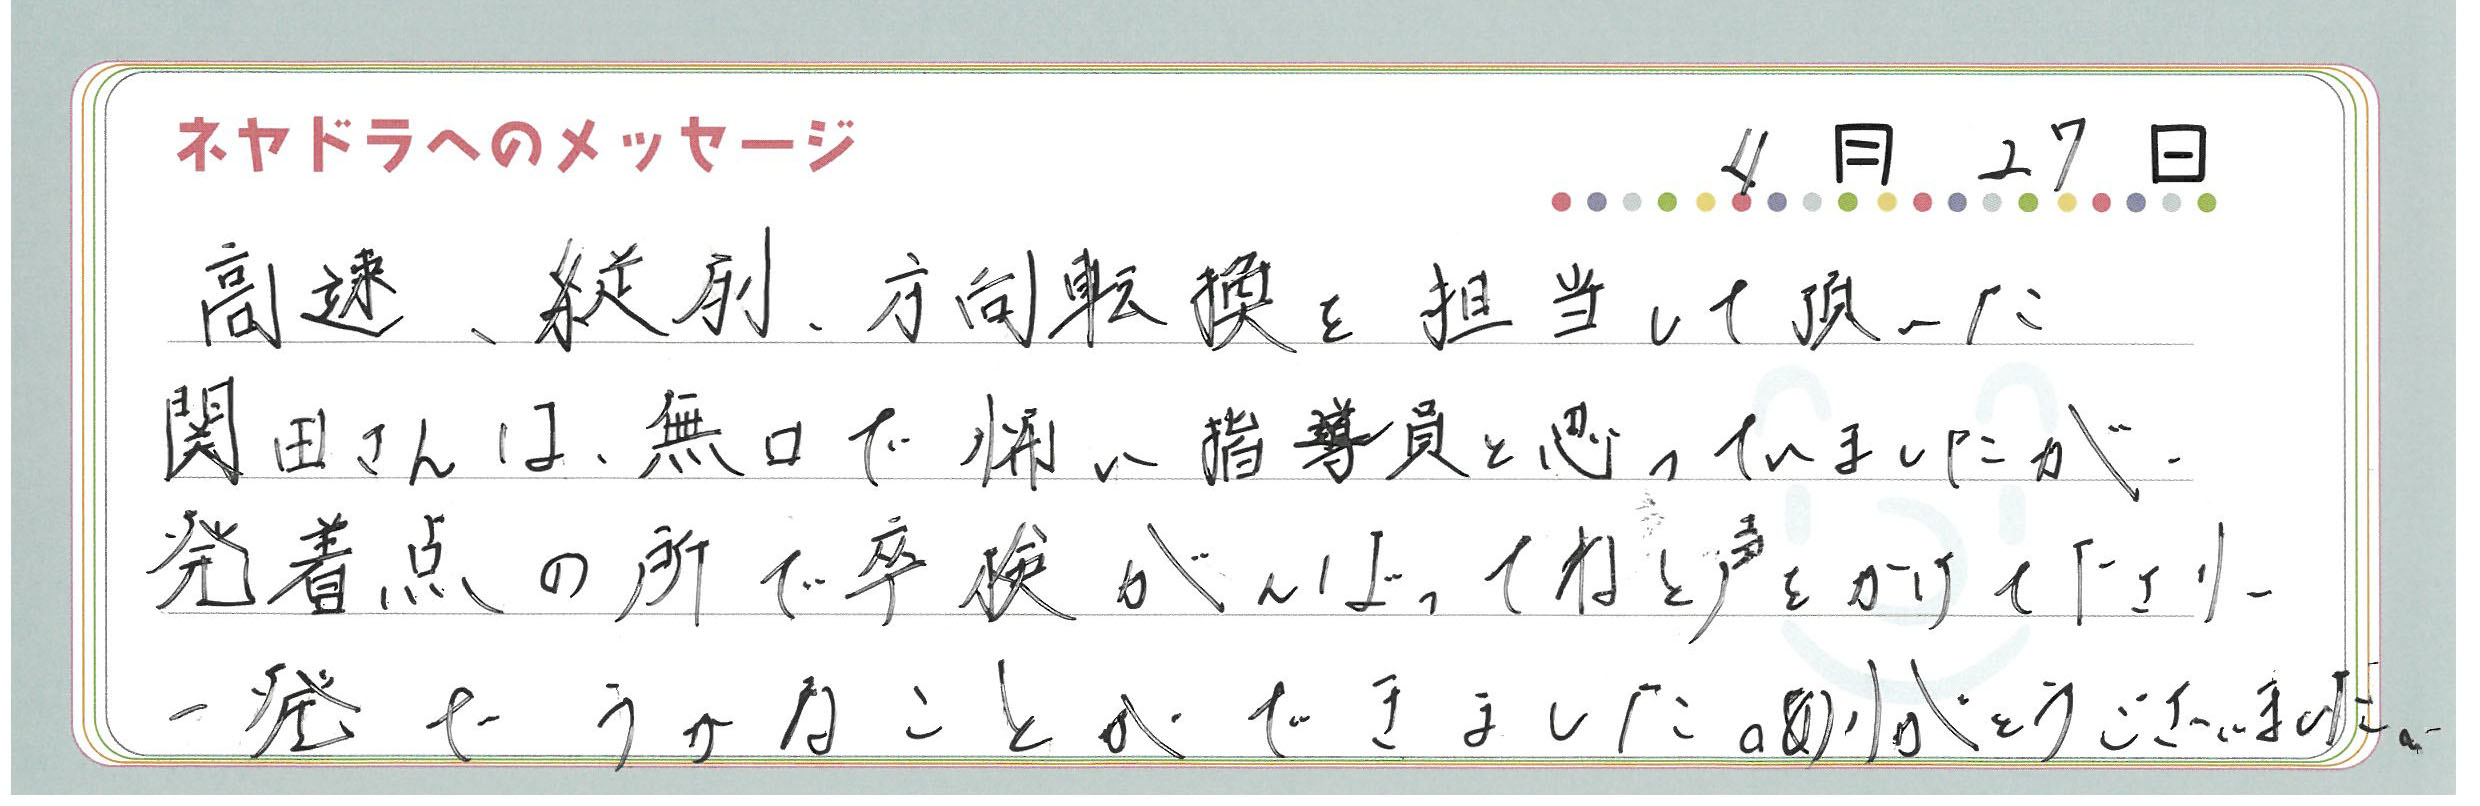 ネヤドラへのメッセージ
4月27日
高速、縦列、方向転換を担当して頂いた
関田さんは、無口で怖い指導員と思っていましたが、
発着点の所で卒検がんばってねと声をかけて下さり
一発でうかることができました。ありがとうございました。